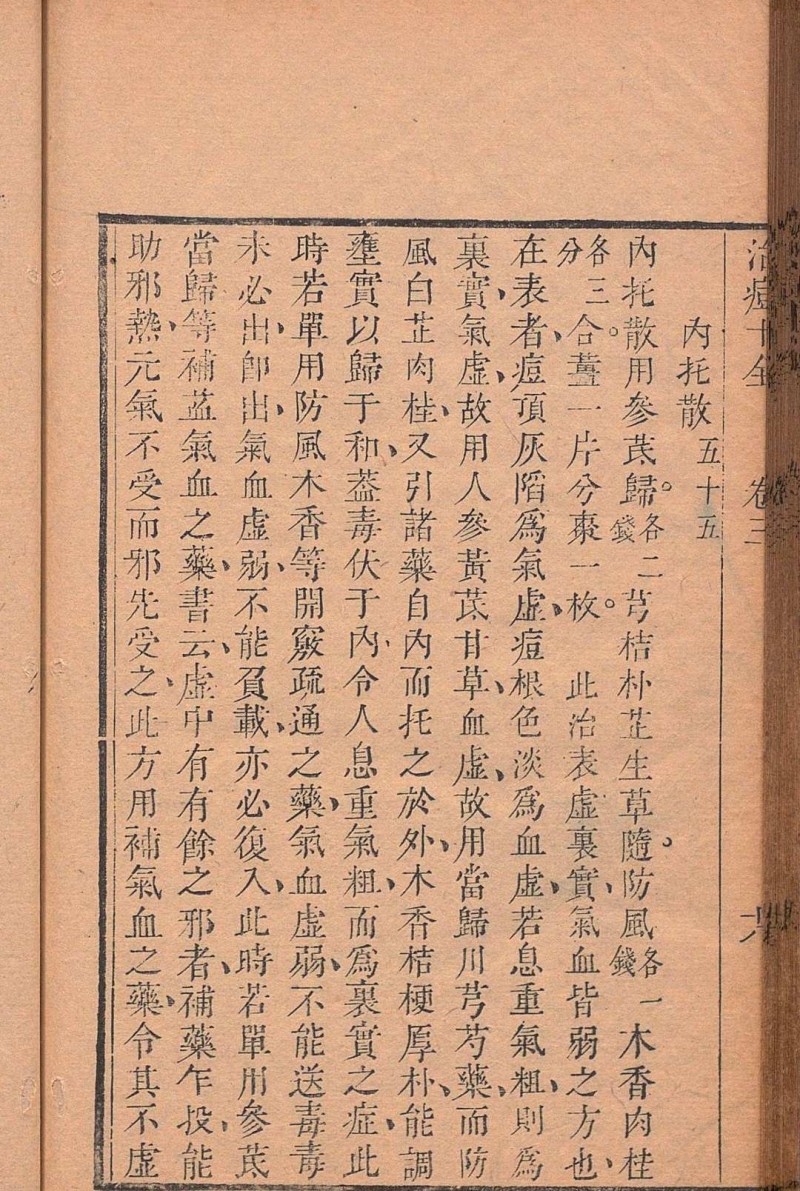 治痘十全 卷三
內托散五十五
內托散用參芪歸。各二錢芎桔朴芷生草隨。防風各一錢木香肉桂
各三分。合薑一片兮棗一枚。此治表虛裏實、氣血皆弱之方也、
在表者、痘頂灰陷爲氣虛、痘根色淡爲血虛、若息重氣粗、則爲
裏實、氣虛、故用人參黃芪甘草、血虛、故用當歸川芎芍藥、而防
風白芷肉桂、又引諸藥自內而托之於外、木香桔梗厚朴、能調
壅實以歸于和、蓋毒伏于內、令人息重氣粗、而爲裏實之症、此
時若單用防風木香等開竅疏通之藥、氣血虛弱、不能送毒毒
未必出、卽出、氣血虛弱、不能負載、亦必復入、此時若單用參芪
當歸等補益氣血之藥、書云、虛中有有餘之邪者、補藥乍投、能
助邪熱、元氣不受而邪先受之、此方用補氣血之藥、令其不虛